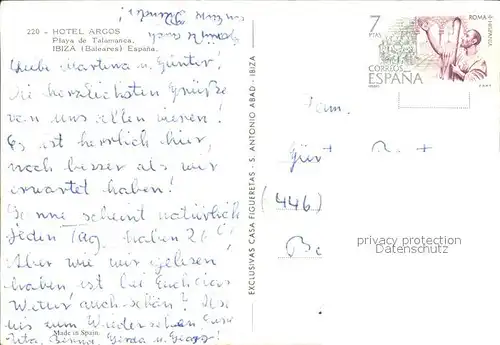 220 - HOTEL ARGOS
Playa de Talamanca.
IBIZA (Baleares) España.
Liebe Martina u. Günter!
Die herzlichsten Grüße
von uns allen vieren!
Es ist herrlich hier,
noch besser als wir
erwartet haben!
Sonne scheint natürlich
jeden Tag, haben 26 C°
Aber wie wir gelesen
haben ist bei Euch das
Wetter auch schön! Also
bis zum Wiedersehen Eure
Uta, Georg
Made in Spain.
EXCLUSIVAS CASA FIGUERETAS - S. ANTONIO ABAD - IBIZA
7
PTAS
ROMA+
HISPANIA
CORREOS
ESPAÑA
Fam.
(446)
privacy protection
Datenschutz